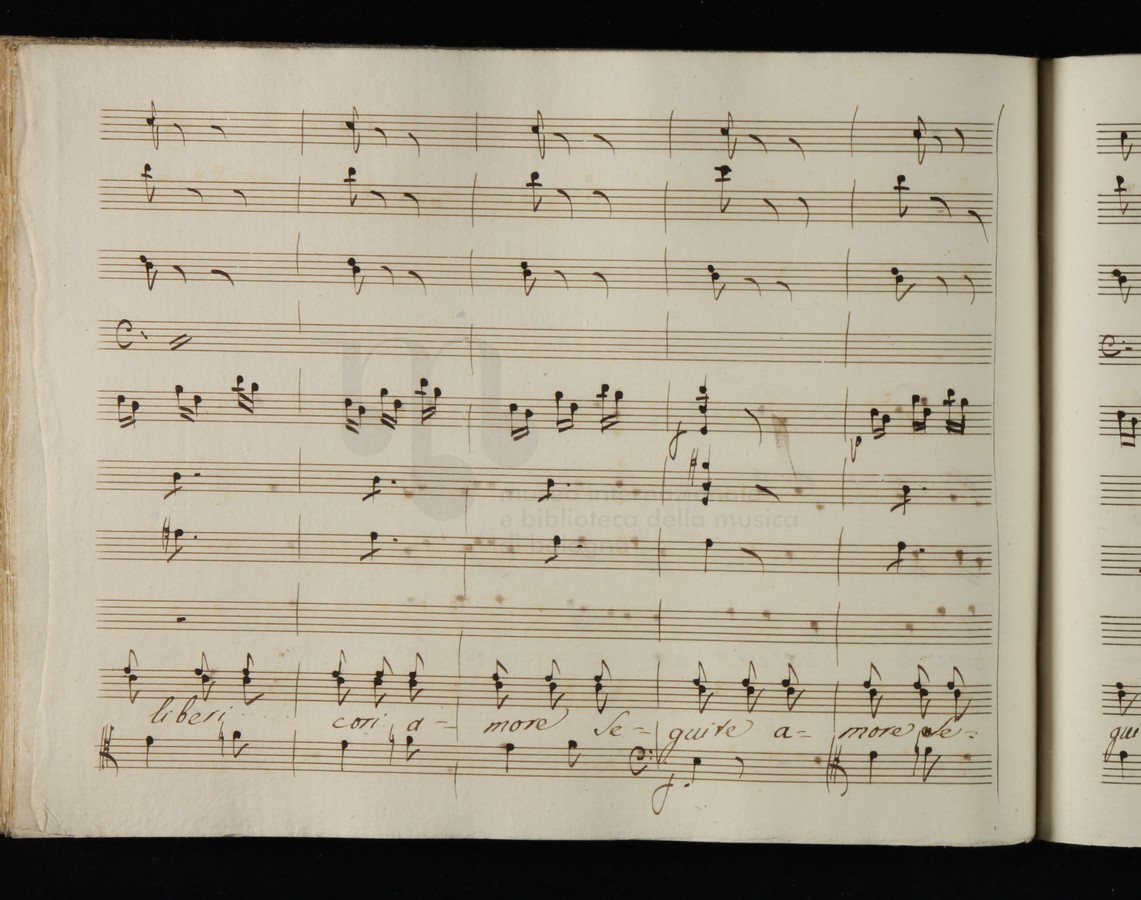 f
p
museo internazionale
e biblioteca della musica
di bologna
liberi cori a= more Se= guite a= more Se=
f.
gui